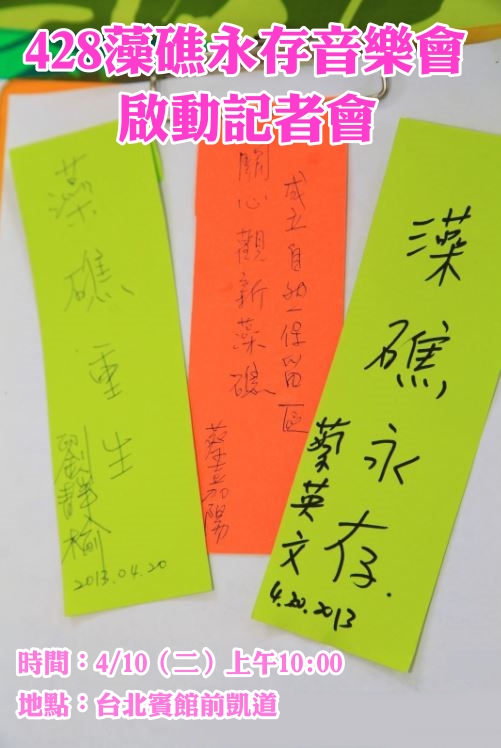 428藻礁永存音樂會
啟動記者會
藻礁重生
劉靜榆
2013.04.20
關心觀新藻礁
成立自然保留區
蔡嘉陽
藻礁永存.
蔡英文
4.20.2013
時間：4/10（二）上午10:00
地點：台北賓館前凱道